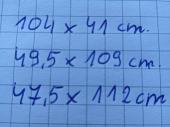 104 x 41 cm.
49,5 x 109 cm.
47,5 x 112 cm